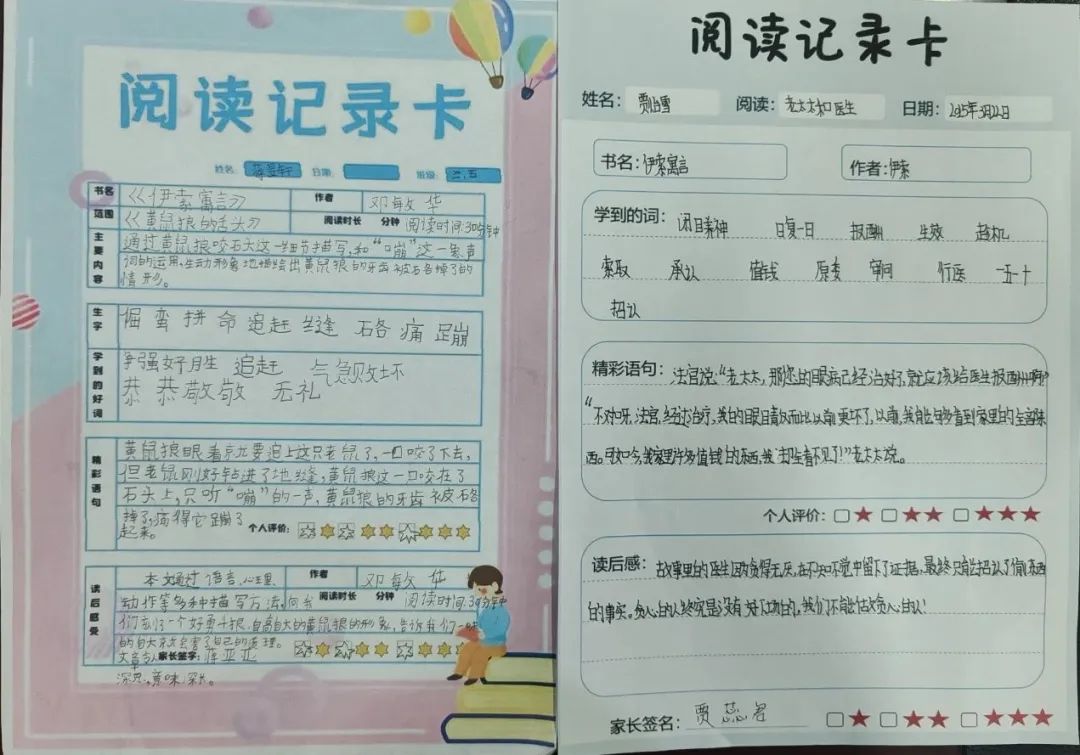 阅读记录卡
姓名: 日期: 班级: 三.五
书名 《伊索寓言》 作者 邓敏华
范围 《黄鼠狼的舌头》 阅读时长 分钟 阅读时间:30分钟
主要内容
通过黄鼠狼咬石头这一细节描写,和“嘣”这一象声
词的运用,生动形象地描绘出黄鼠狼的牙齿被石各掉了的
情形。
生字
倔 蛮 拼 命 追赶 缝 硌 痛 蹦
学到的好词
争强好胜 追赶 气急败坏
恭恭敬敬 无礼
精彩语句
黄鼠狼眼看就要追上这只老鼠了,一口咬了下去,
但老鼠刚好钻进了地缝,黄鼠狼这一口咬在了
石头上,只听“嘣”的一声,黄鼠狼的牙齿被硌
掉了,痛得它蹦了
起来。 个人评价:
读后感受
本文通过语言、心理 作者 邓敏华
动作等多种描写方法,向我 阅读时长 分钟 阅读时间:30分钟
们刻了一个好勇斗狠,自高自大的黄鼠狼的形象,告诉我们
的自大只会害了自己的道理。
家长签字: 蒋亚亚
深刻,意味深长。
阅读记录卡
姓名: 阅读: 老太太和医生 日期: 2025年3月22日
书名: 伊索寓言 作者: 伊索
学到的词: 闭目养神 日复一日 报酬 生效 趁机
索取 承认 值钱 原委 审问 行医 一五一十
招认
精彩语句: 法官说:“老太太,那您的眼病已经治好了,就应该给医生报酬啊?”
“不对呀,法官,经过治疗,我的眼睛反而比以前更坏了,以前,我能够看到家里的全部东
西。可如今,我家里许多值钱的东西,我却看不见了!”老太太说。
个人评价:
读后感: 故事里的医生因贪得无厌,在不知不觉中留下了证据,最终只能招认了偷东西
的事实。贪心的人终究是没有好下场的,我们不能做贪心的人!
家长签名: 贾蕊君